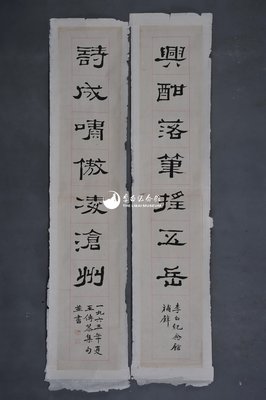 興酣落筆摇五岳
李白纪念館
補鋅
詩成嘯傲凌滄州
一九六三年夏
王傳善集句
並書
李白纪念馆
THE LIBAI MUSEUM